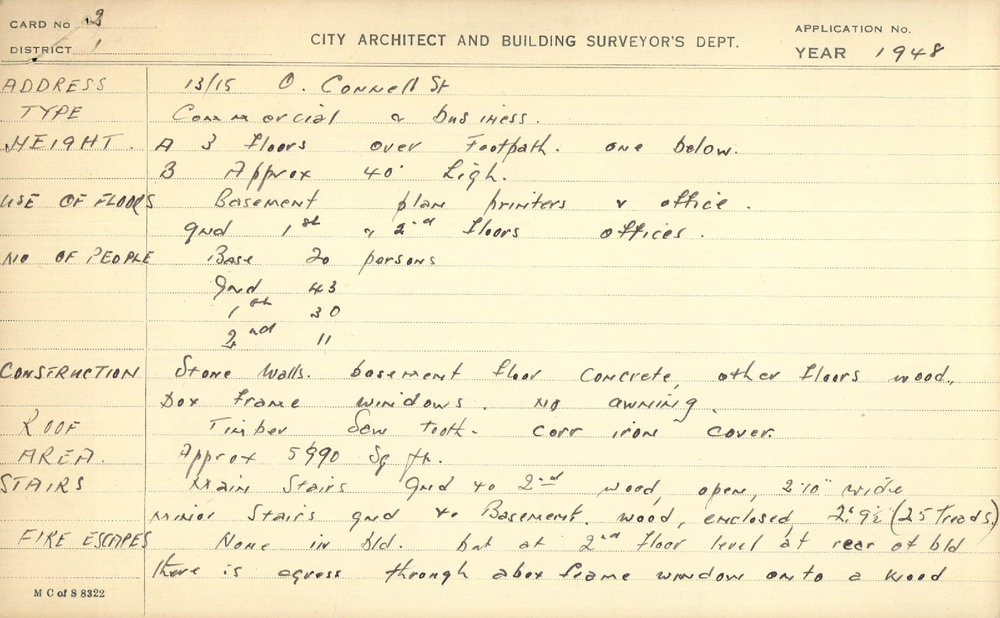 CARD No 2
DISTRICT 1
CITY ARCHITECT AND BUILDING SURVEYOR'S DEPT.
APPLICATION No.
YEAR 1948
ADDRESS 13/15 O. Connell St
TYPE Commercial & business.
HEIGHT. A 3 floors over Footpath. one below.
B Approx 40' high.
USE OF FLOORS Basement plan printers & office.
gnd 1st & 2nd floors offices.
NO OF PEOPLE Base 20 persons
gnd 43
1st 30
2nd 11
CONSTRUCTION Stone walls. basement floor concrete, other floors wood,
box frame windows. No awning.
ROOF Timber Saw tooth. corr iron cover.
AREA. Approx 5990 sq ft.
STAIRS Main Stairs gnd to 2nd wood, open, 2'10" wide
minor Stairs gnd to Basement. wood, enclosed, 2'9½ (25 Treads)
FIRE ESCAPES None in bld. but at 2nd floor level at rear of bld
there is egress through a box frame window onto a wood
M C of S 8322